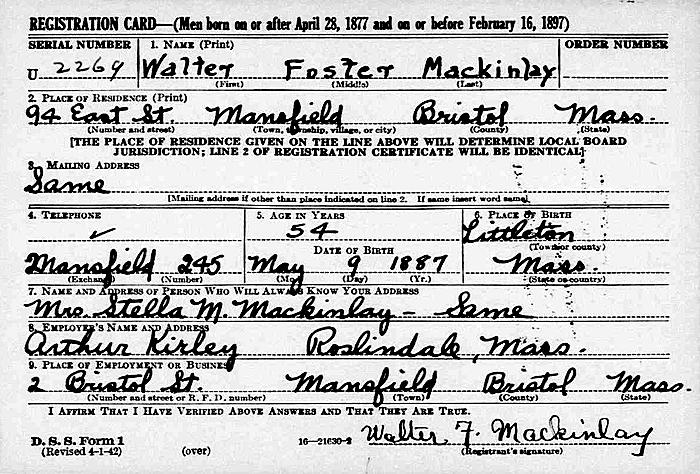 REGISTRATION CARD—(Men born on or after April 28, 1877 and on or before February 16, 1897)
SERIAL NUMBER 1. NAME (Print) ORDER NUMBER
U 2269 Walter Foster Mackinlay
(First) (Middle) (Last)
2. PLACE OF RESIDENCE (Print)
94 East St. Mansfield Bristol Mass.
(Number and street) (Town, township, village, or city) (County) (State)
[THE PLACE OF RESIDENCE GIVEN ON THE LINE ABOVE WILL DETERMINE LOCAL BOARD
JURISDICTION; LINE 2 OF REGISTRATION CERTIFICATE WILL BE IDENTICAL]
3. MAILING ADDRESS
Same
[Mailing address if other than place indicated on line 2. If same insert word same]
4. TELEPHONE 5. AGE IN YEARS 6. PLACE OF BIRTH
✓ 54 Littleton
DATE OF BIRTH (Town or county)
Mansfield 245 May 9 1887 Mass.
(Exchange) (Number) (Mo.) (Day) (Yr.) (State or country)
7. NAME AND ADDRESS OF PERSON WHO WILL ALWAYS KNOW YOUR ADDRESS
Mrs. Stella M. Mackinlay - Same
8. EMPLOYER'S NAME AND ADDRESS
Arthur Kirley Roslindale, Mass.
9. PLACE OF EMPLOYMENT OR BUSINESS
2 Bristol St. Mansfield Bristol Mass.
(Number and street or R. F. D. number) (Town) (County) (State)
I AFFIRM THAT I HAVE VERIFIED ABOVE ANSWERS AND THAT THEY ARE TRUE.
D. S. S. Form 1
(Revised 4-1-42) (over) 16—21630-2 Walter F. Mackinlay
(Registrant's signature)